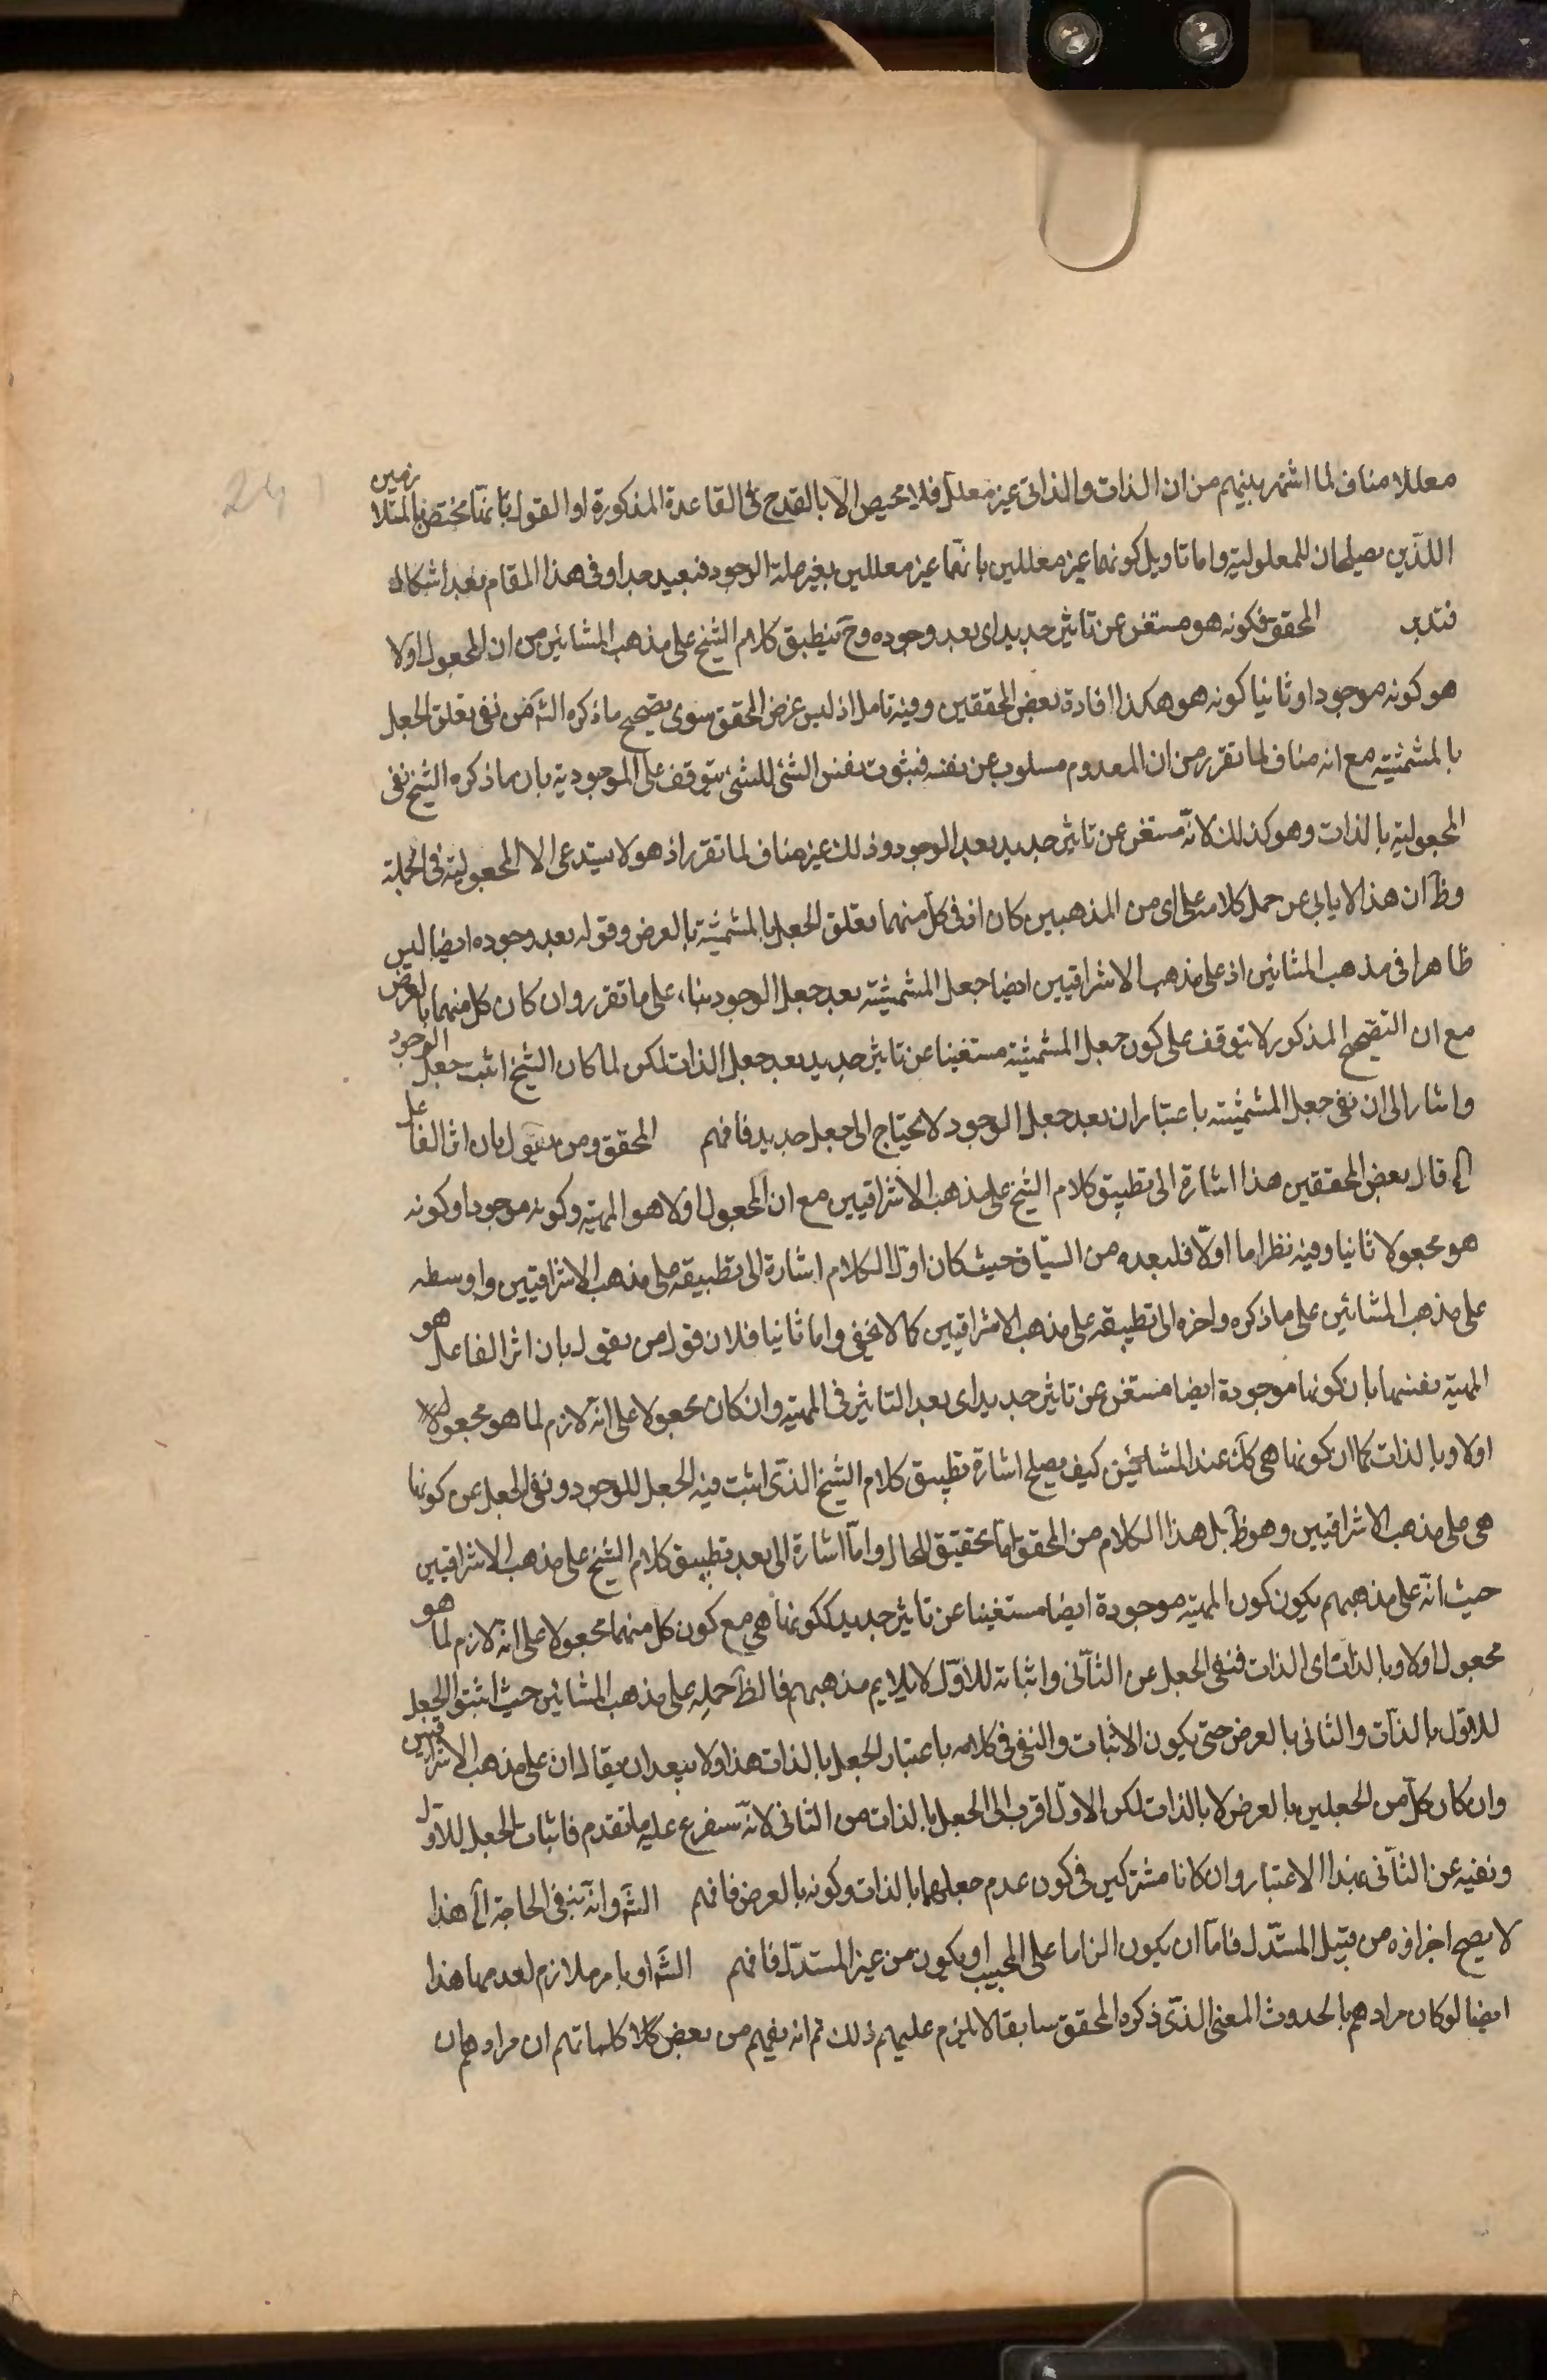 معللا مناف لما اشتهر بينهم من ان الذات والذاتى غير معلل فلا محيص الا بالقدح فى القاعدة المذكورة او القول بانها مختص بالمتلازمين
اللذين يصلحان للمعلولية واما تاويل كونهما غير معللين بانهما غير معللين بغير علة الوجود فبعيد جدا وفى هذا المقام بعد اشكال
فتدبر المحقق فكونه هو مستغن عن تاثير جديد اى بعد وجوده وح ينطبق كلام الشيخ على مذهب المشائين من ان المجعول اولا
هو كونه موجودا وثانيا كونه هو هكذا افادة بعض المحققين وفيه تامل اذ ليس غرض المحقق سوى تصحيح ماذكره الش من نفى تعلق الجعل
بالمشمشية مع انه مناف لما تقرر من ان المعدوم مسلوب عن نفسه فثبوت نفس الشئ للشئ يتوقف على الموجودية بان ماذكره الشيخ نفى
المجعولية بالذات وهو كذلك لانه مستغن عن تاثير جديد بعد الوجود وذلك غير مناف لما تقرر اذ هو لا يستدعى الا المجعولية فى الجملة
وظ ان هذا لا يابى عن حمل كلامه على اى من المذهبين كان اذ فى كل منهما تعلق الجعل بالمشمشية بالعرض وقوله بعد وجوده ايضا ليس
ظاهرا فى مذهب المشائين اذ على مذهب الاشراقيين ايضا جعل المشمشية بعد جعل الوجود بناء على ما تقرر وان كان كل منهما بالعرض
مع ان التصحيح المذكور لا يتوقف على كون جعل المشمشية مستغنيا عن تاثير جديد بعد جعل الذات لكن لما كان الشيخ اثبت جعل الوجود
واشار الى ان نفى جعل المشمشية باعتبار ان بعد جعل الوجود لا يحتاج الى جعل جديد فافهم المحقق ومن يقول بان اثر الفاعل
الخ قال بعض المحققين هذا اشارة الى تطبيق كلام الشيخ على مذهب الاشراقيين مع ان المجعول اولا هو المهية وكونه موجودا وكونه
هو مجعولا ثانيا وفيه نظر اما اولا فلبعده من السياق حيث كان اول الكلام اشارة الى تطبيقه على مذهب الاشراقيين واوسطه
على مذهب المشائين على ماذكره واخره الى تطبيقه على مذهب الاشراقيين كما لا يخفى واما ثانيا فلان قول من يقول بان اثر الفاعل هو
المهية نفسها بان كونها موجودة ايضا مستغن عن تاثير جديد اى بعد التاثير فى المهية وان كان مجعولا على انه لازم لما هو مجعول
اولا وبالذات كما ان كونها هى كك عند المشائين كيف يصلح اشارة تطبيق كلام الشيخ الذى اثبت فيه الجعل للوجود ونفى الجعل عن كونها
هى على مذهب الاشراقيين وهو ظ بل هذا الكلام من المحقق اما تحقيق للحال واما اشارة الى بعد تطبيق كلام الشيخ على مذهب الاشراقيين
حيث انه على مذهبهم يكون كون المهية موجودة ايضا مستغنيا عن تاثير جديد ككونها هى مع كون كل منهما مجعولا على انه لازم لما هو
مجعول اولا وبالذات اى الذات فنفى الجعل عن الثانى واثباته للاول لا يلايم مذهبهم فالظ حمله على مذهب المشائين حيث اثبتوا الجعل
للاول بالذات والثانى بالعرض حتى يكون الاثبات والنفى فى كلامه باعتبار الجعل بالذات هذا ولا يبعد ان يقال ان على مذهب الاشراقيين
وان كان كل من الجعلين بالعرض لا بالذات لكن الاول اقرب الى الجعل بالذات من الثانى لانه يتفرع عليه ما تقدم فاثبات الجعل للاول
ونفيه عن الثانى بهذا الاعتبار وان كانا مشتركين فى كون عدم جعلهما بالذات وكونه بالعرض فافهم الش وانه ينفى الحاجة الخ هذا
لا يصح اجزاؤه من قبيل المستدل فاما ان يكون الزاما على المجيب او يكون من غير المستدل فافهم الش او بامر ملازم لعدمها هذا
ايضا لو كان مرادهم بالحدوث المعنى الذى ذكره المحقق سابقا لا يلزم عليهم ذلك ثم انه يفهم من بعض كلماتهم ان مرادهم ان